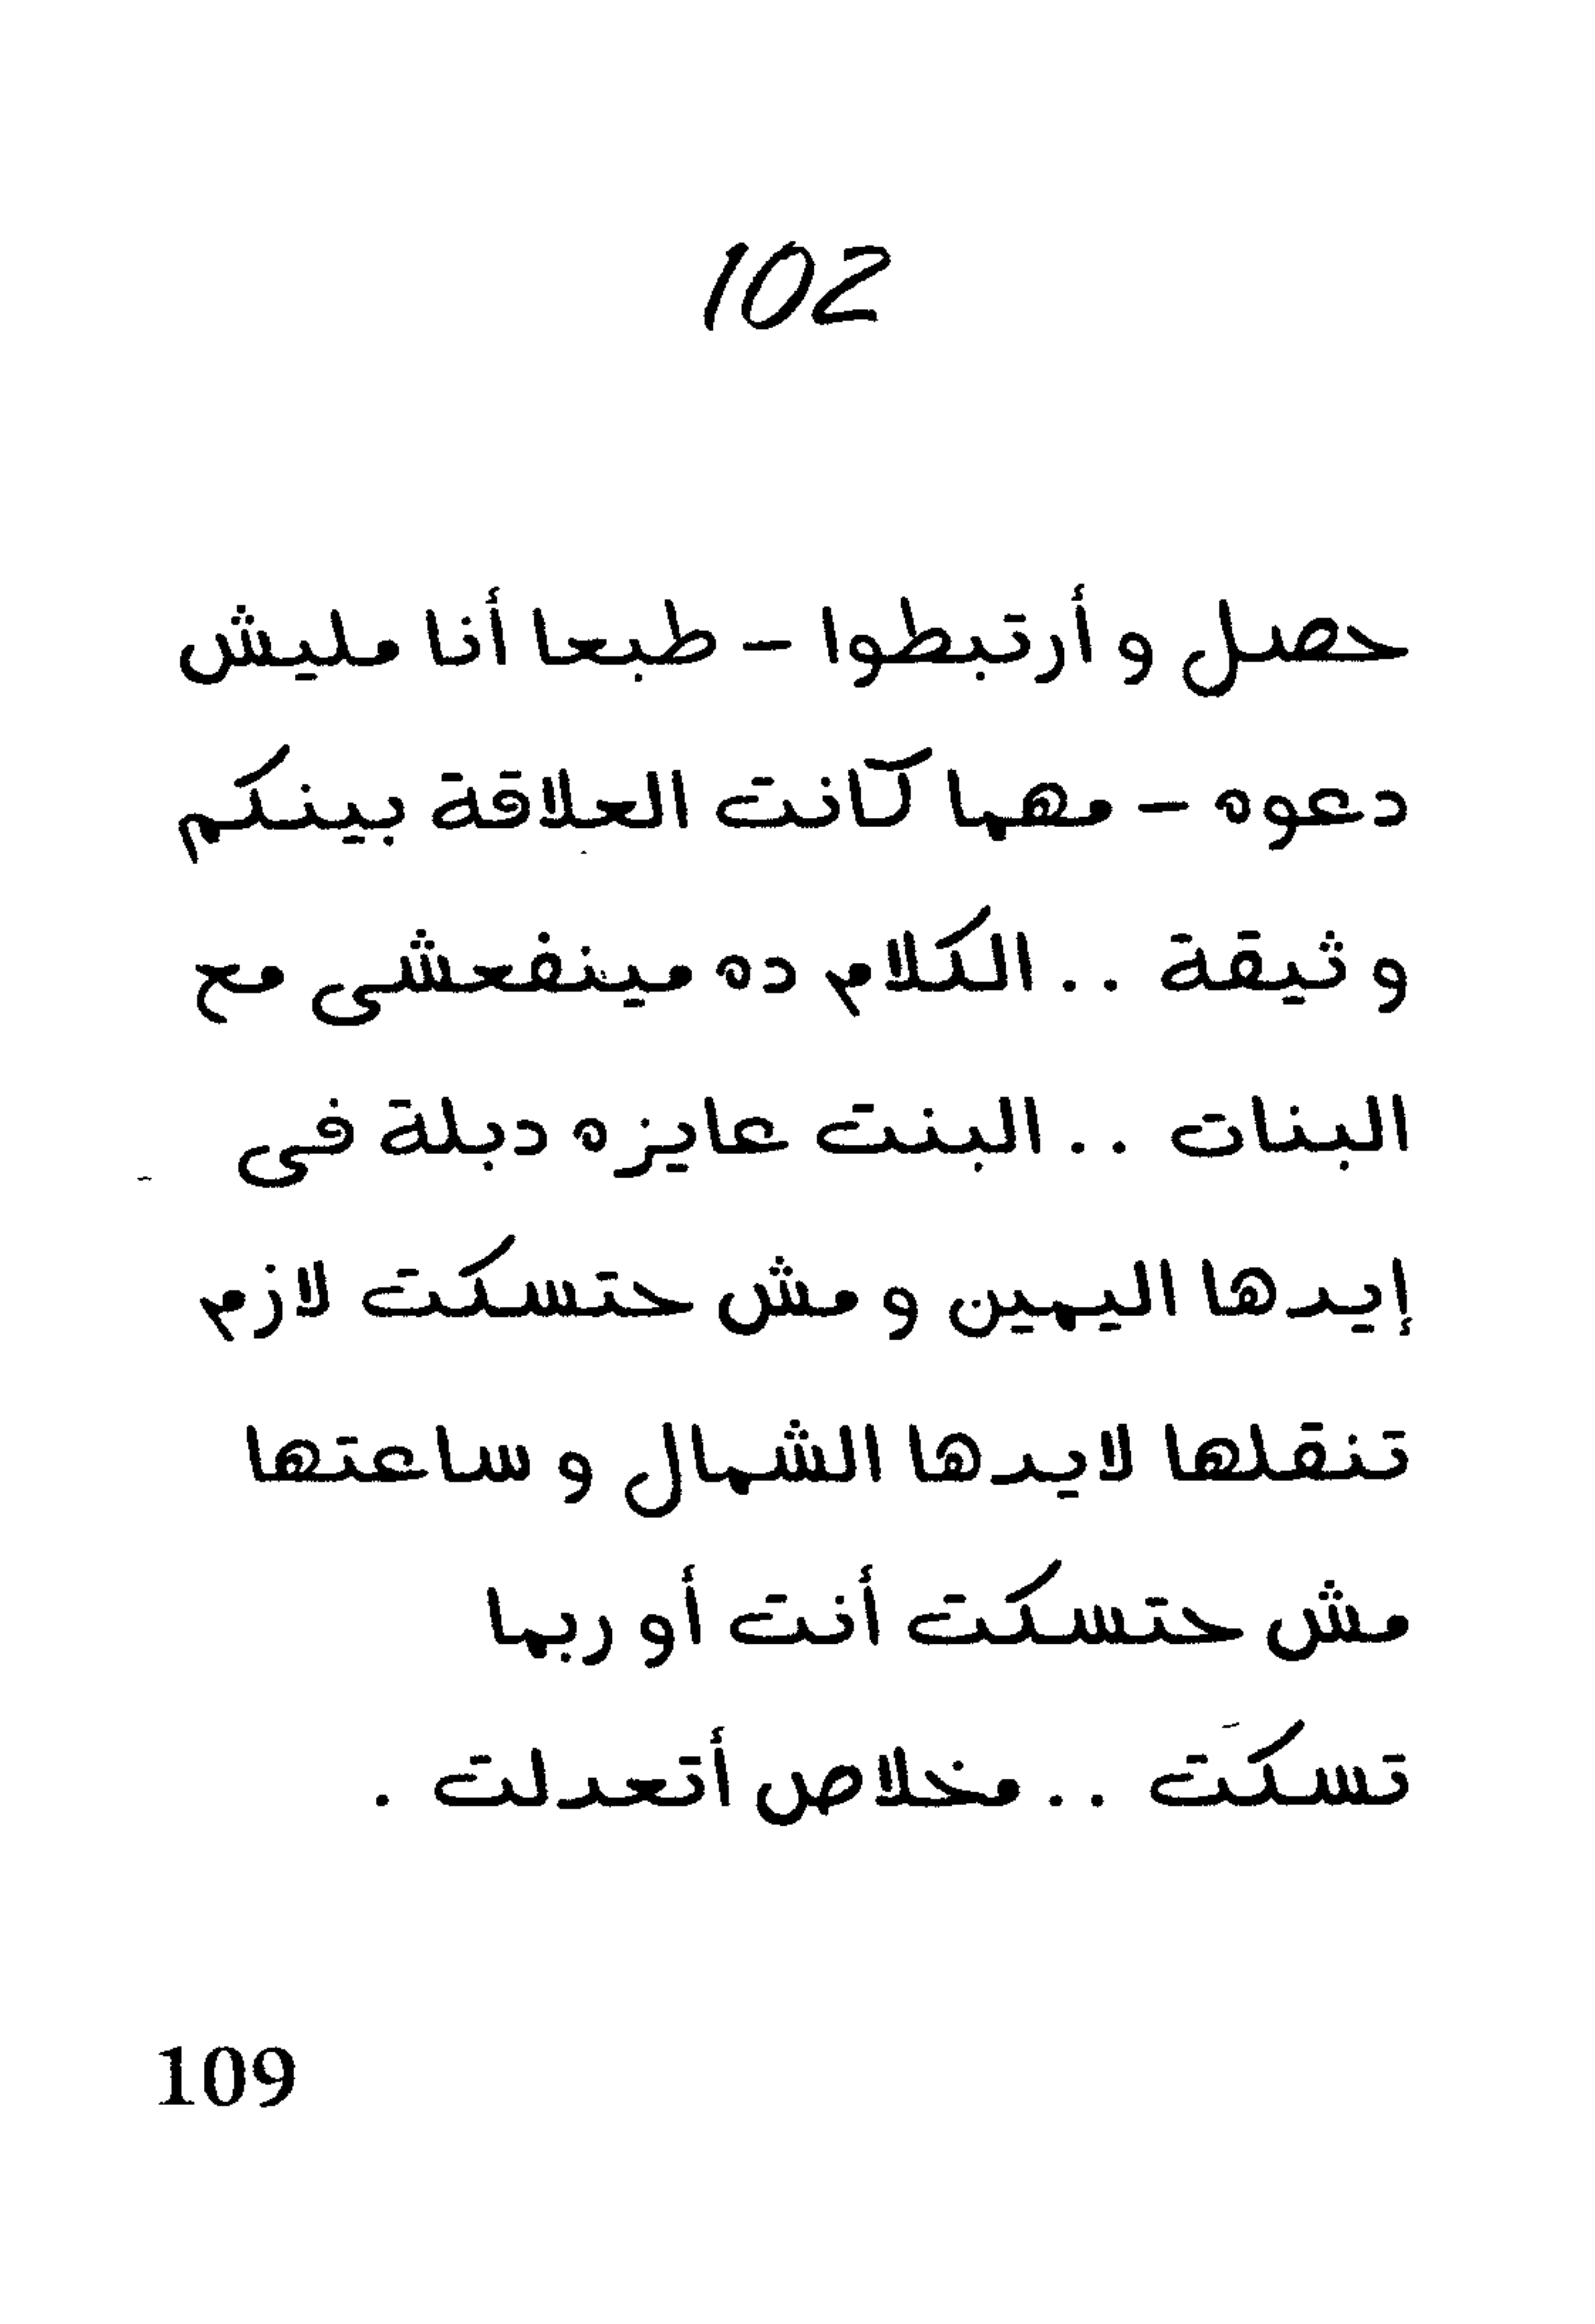 102
حصل وأرتبطوا - طبعا أنا مليش
دعوه - مهما كانت العلاقة بينكم
وثيقة .. الكلام ده مينفعشى مع
البنات .. البنت عايزه دبلة فى
إيدها اليمين ومش حتسكت لازم
تنقلها لايدها الشمال وساعتها
مش حتسكت أنت أو ربما
تسكت .. مخلاص أتعدلت .
109